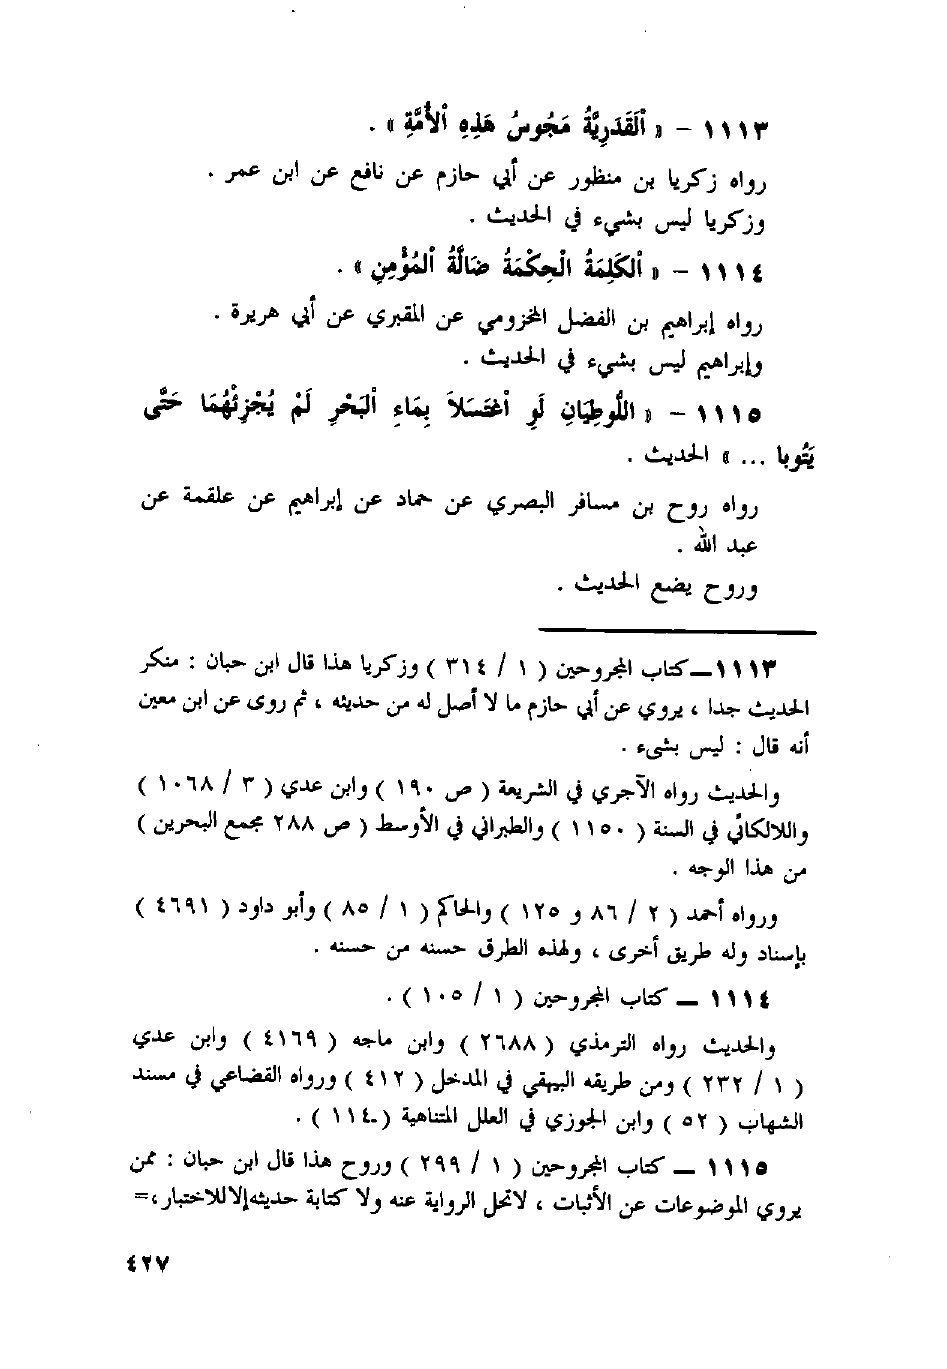 ١١١٣ - « اَلْقَدَرِيَّةُ مَجُوسُ هَذِهِ اَلأُمَّةِ » .
رواه زكريا بن منظور عن أبي حازم عن نافع عن ابن عمر .
وزكريا ليس بشيء في الحديث .
١١١٤ - « اَلْكَلِمَةُ الْحِكْمَةُ ضَالَّةُ اَلمُؤْمِنِ » .
رواه إبراهيم بن الفضل المخزومي عن المقبري عن أبي هريرة .
وإبراهيم ليس بشيء في الحديث .
١١١٥ - « اللُّوطِيَانِ لَوِ اَغْتَسَلاَ بِمَاءِ اَلبَحْرِ لَمْ يُجْزِئْهُمَا حَتَّى
يَتُوبا ... » الحديث .
رواه روح بن مسافر البصري عن حماد عن إبراهيم عن علقمة عن
عبد الله .
وروح يضع الحديث .
١١١٣ــ كتاب المجروحين ( ١ / ٣١٤ ) وزكريا هذا قال ابن حبان : منكر
الحديث جدا ، يروي عن أبي حازم ما لا أصل له من حديثه ، ثم روى عن ابن معين
أنه قال : ليس بشيء .
والحديث رواه الآجري في الشريعة ( ص ١٩٠ ) وابن عدي ( ٣ / ١٠٦٨ )
واللالكائي في السنة ( ١١٥٠ ) والطبراني في الأوسط ( ص ٢٨٨ مجمع البحرين )
من هذا الوجه .
ورواه أحمد ( ٢ / ٨٦ و ١٢٥ ) والحاكم ( ١ / ٨٥ ) وأبو داود ( ٤٦٩١ )
بإسناد وله طريق أخرى ، ولهذه الطرق حسنه من حسنه .
١١١٤ ــ كتاب المجروحين ( ١ / ١٠٥ ) .
والحديث رواه الترمذي ( ٢٦٨٨ ) وابن ماجه ( ٤١٦٩ ) وابن عدي
( ١ / ٢٣٢ ) ومن طريقه البيهقي في المدخل ( ٤١٢ ) ورواه القضاعي في مسند
الشهاب ( ٥٢ ) وابن الجوزي في العلل المتناهية ( ١١٤٠ ) .
١١١٥ ــ كتاب المجروحين ( ١ / ٢٩٩ ) وروح هذا قال ابن حبان : ممن
يروي الموضوعات عن الأثبات ، لاتحل الرواية عنه ولا كتابة حديثه إلا للاختبار ،=
٤٢٧